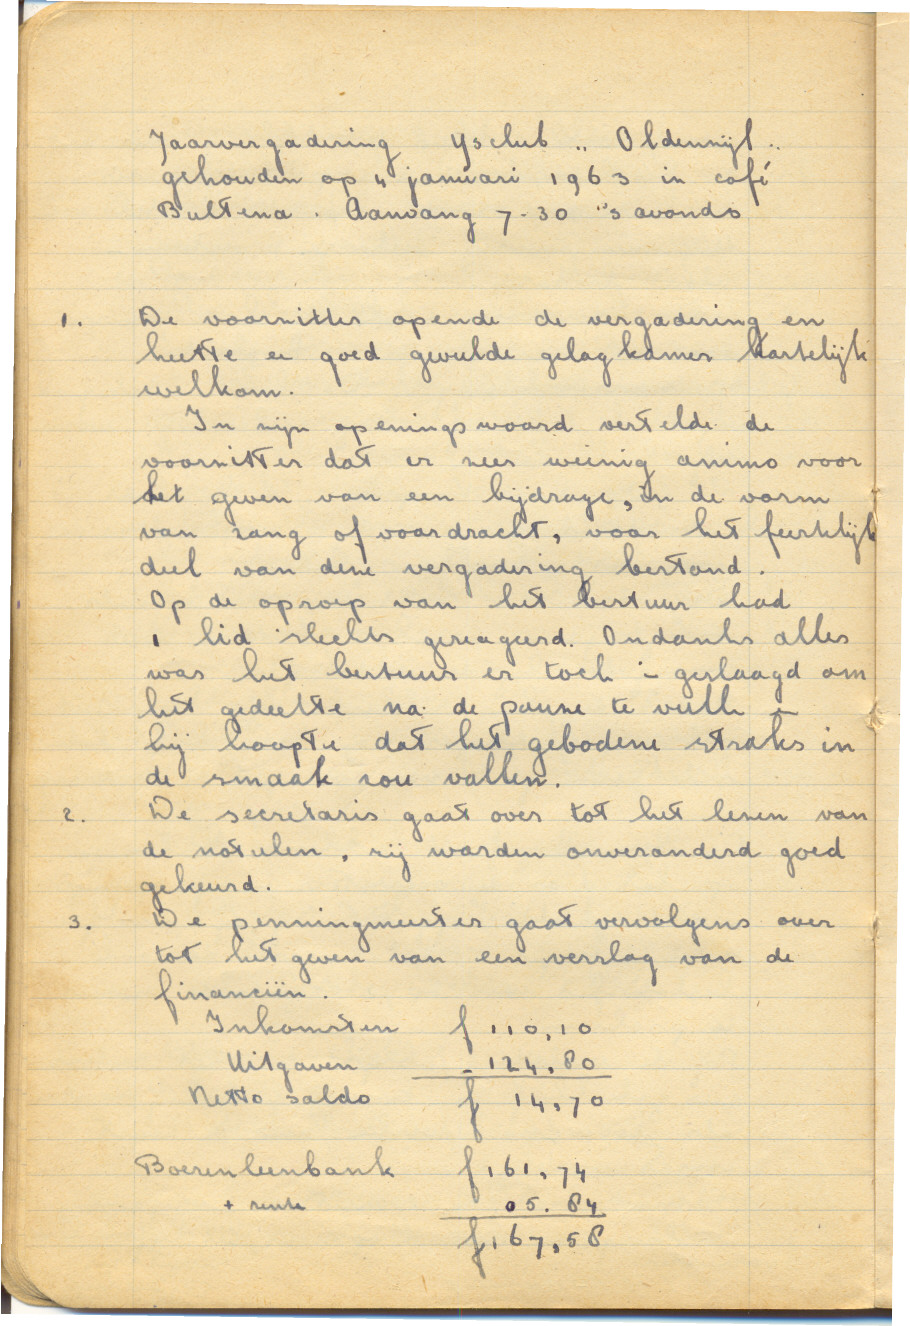 Jaarvergadering Ysclub „ Oldenzijl „
gehouden op 4 januari 1963 in café
Bultena. Aanvang 7-30 "s avonds
1. De voorzitter opende de vergadering en
heette ee goed gevulde gelagkamer hartelijk
welkom.
In zijn openingswoord vertelde de
voorzitter dat er zeer weinig animo voor
het geven van een bijdrage, in de vorm
van zang of voordracht, voor het feestelijk
deel van deze vergadering bestond.
Op de oproep van het bestuur had
1 lid slechts gereageerd. Ondanks alles
was het bestuur er toch in geslaagd om
het gedeelte na de pauze te vullen
hij hoopte dat het gebodene straks in
de smaak zou vallen.
2. De secretaris gaat over tot het lezen van
de notulen, zij worden onveranderd goed
gekeurd.
3. De penningmeester gaat vervolgens over
tot het geven van een verslag van de
financiën.
Inkomsten f 110,10
Uitgaven - 124,80
Netto saldo f 14,70
Boerenleenbank f 161,74
+ rente 05.84
f 167,58